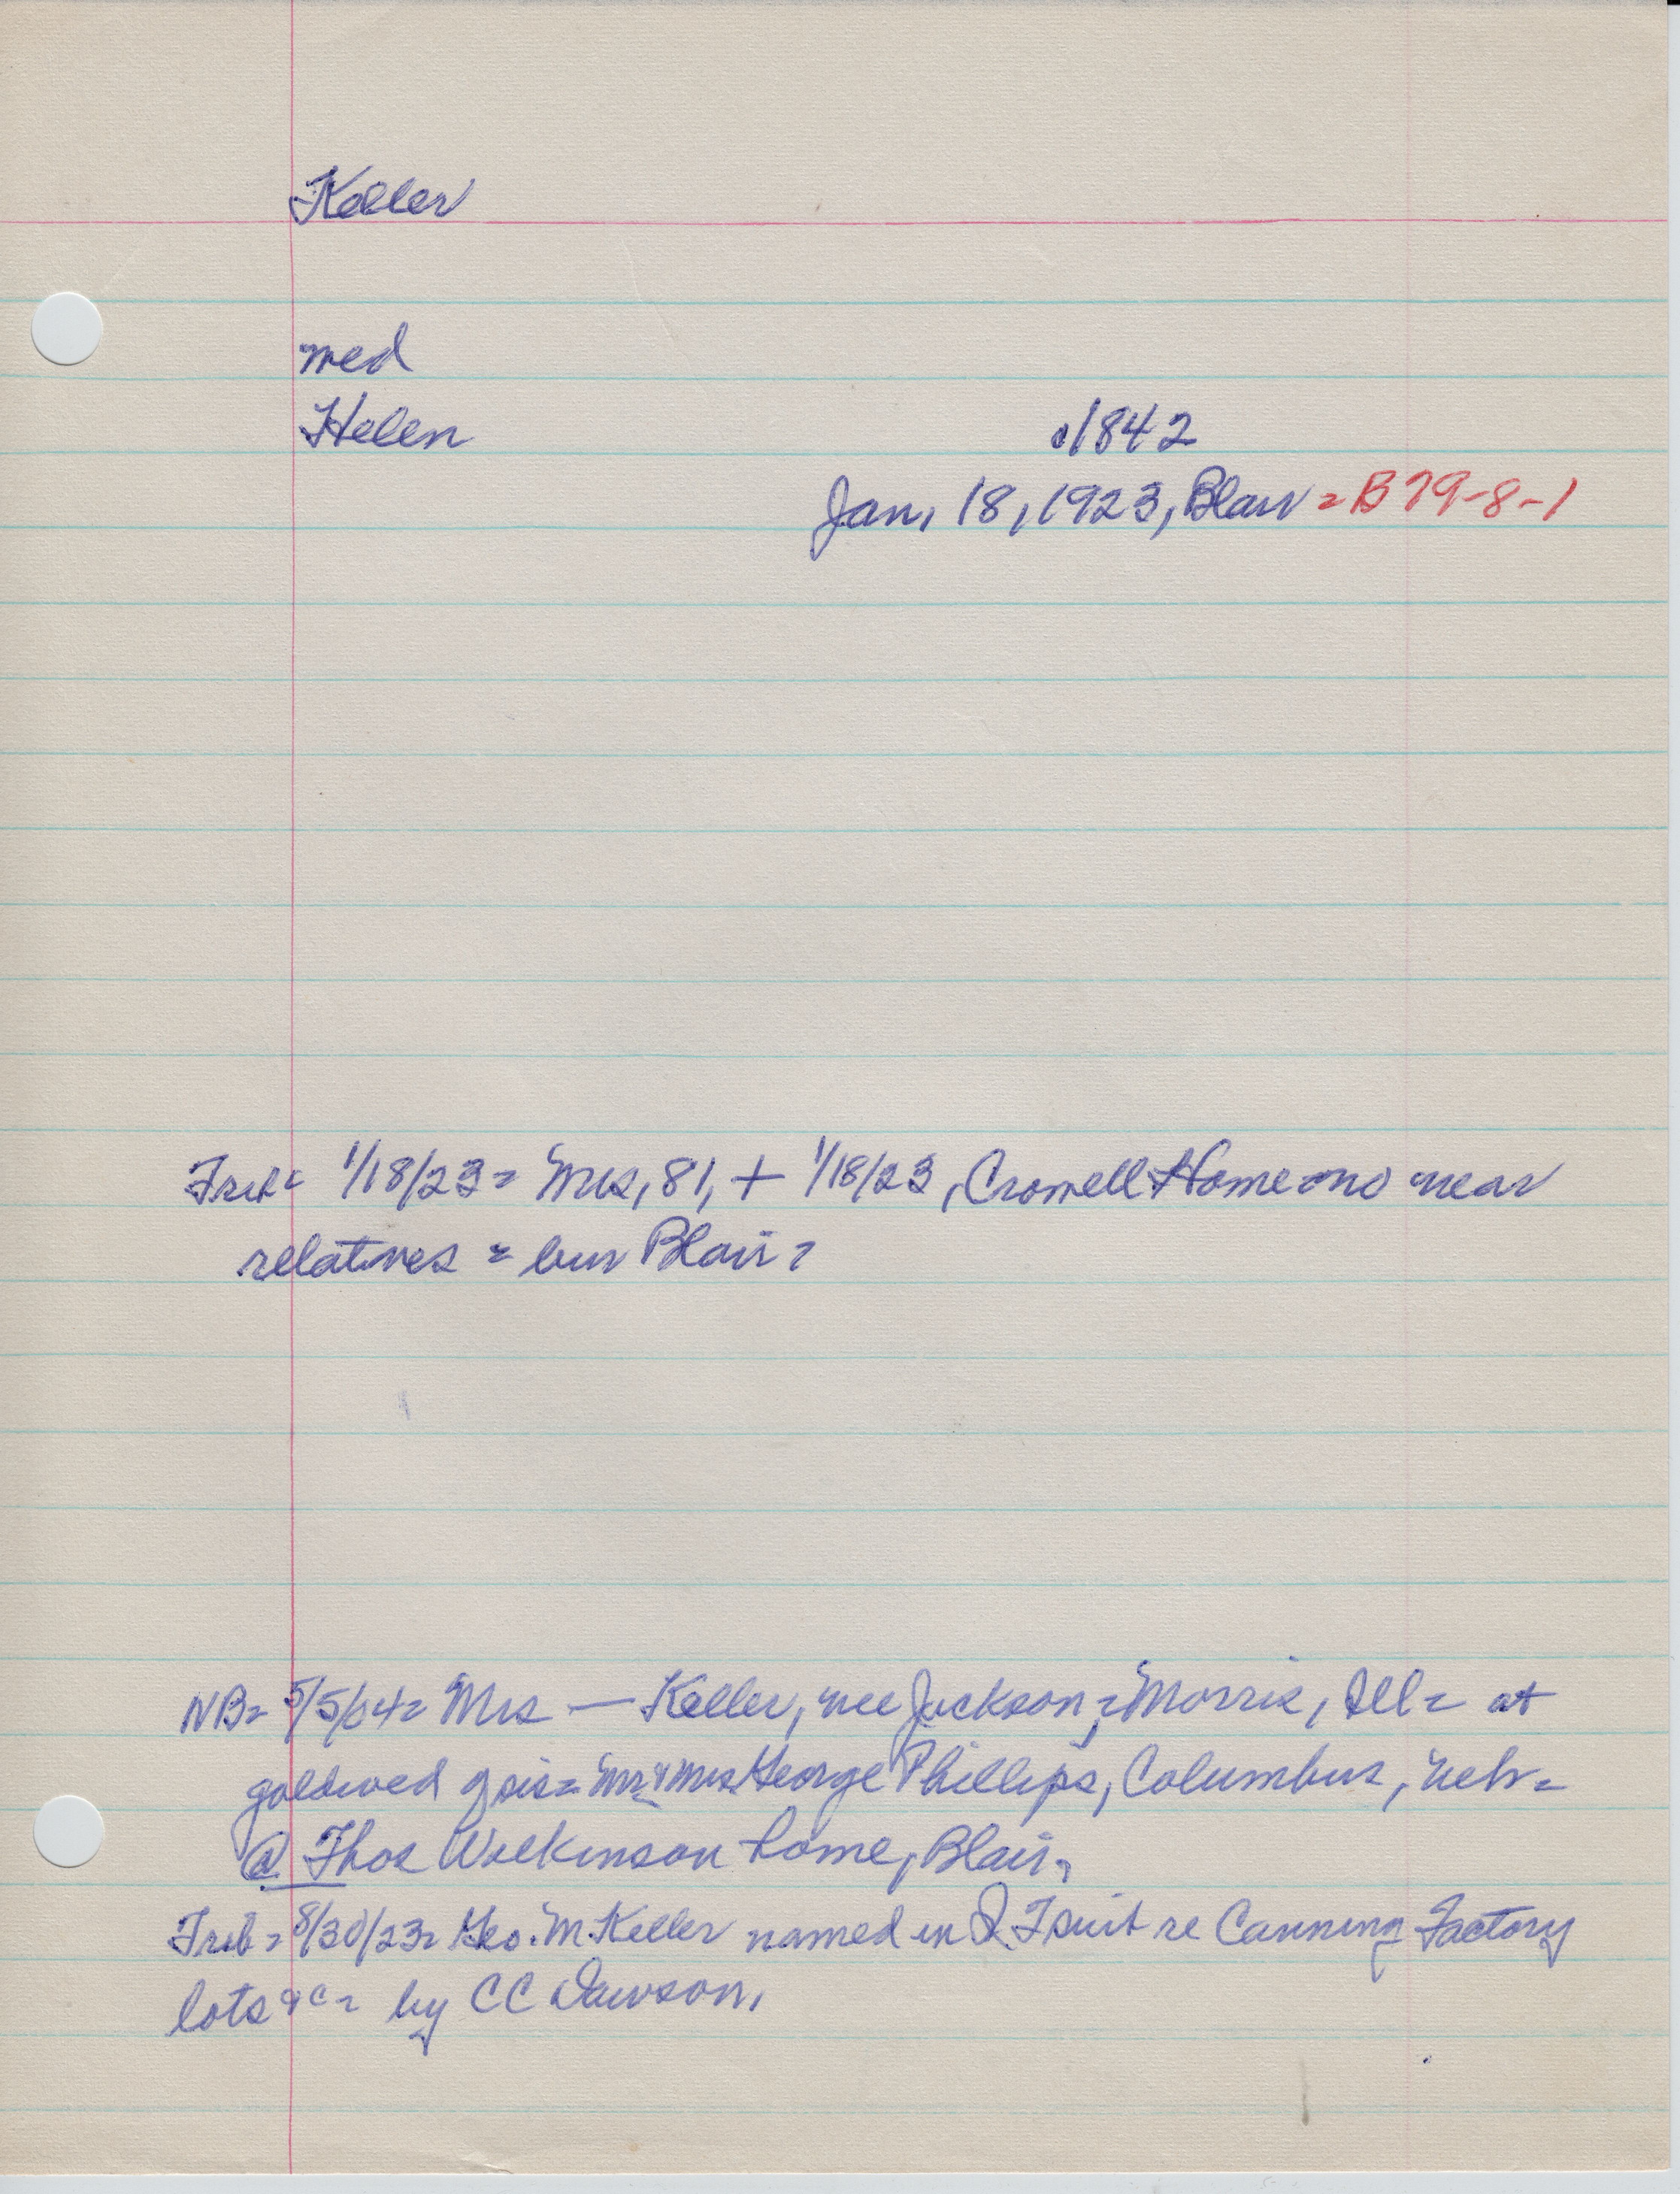 Keller
med
Helen
c1842
Jan, 18, 1923, Blair = B79-8-1
Trib = 1/18/23 = Mrs, 81, + 1/18/23, Crowell Home = no near
relatives = bur Blair =
NB = 5/5/04 = Mrs — Keller, nee Jackson = Morris, Ill = at
goldwed of sis = Mr & Mrs George Phillips, Columbus, Neb =
@ Thos Wilkinson home, Blair,
Trib = 8/30/23 = Geo. M. Keller named in Q T suit re Canning Factory
lots &c = by CC Dawson,